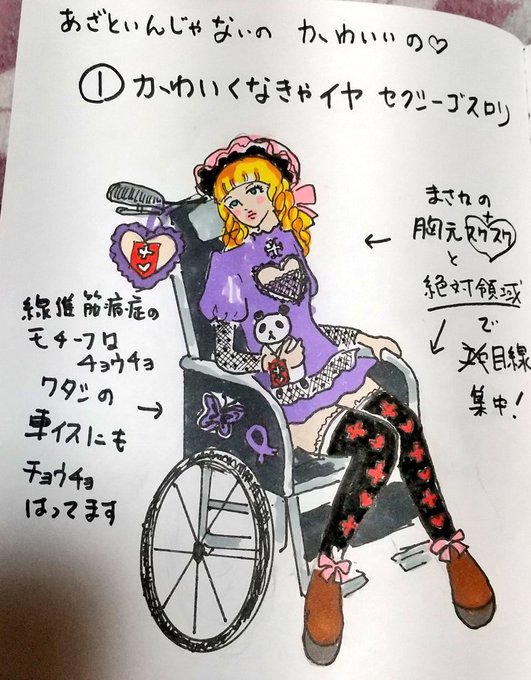 あざといんじゃないの かわいいの♡
① かわいくなきゃイヤ セクシーゴスロリ
まさかの
胸元スケスケ
と
絶対領域
で
目線
集中!
線維筋痛症の
モチーフは
チョウチョ
ワタシの
車イスにも
チョウチョ
はってます